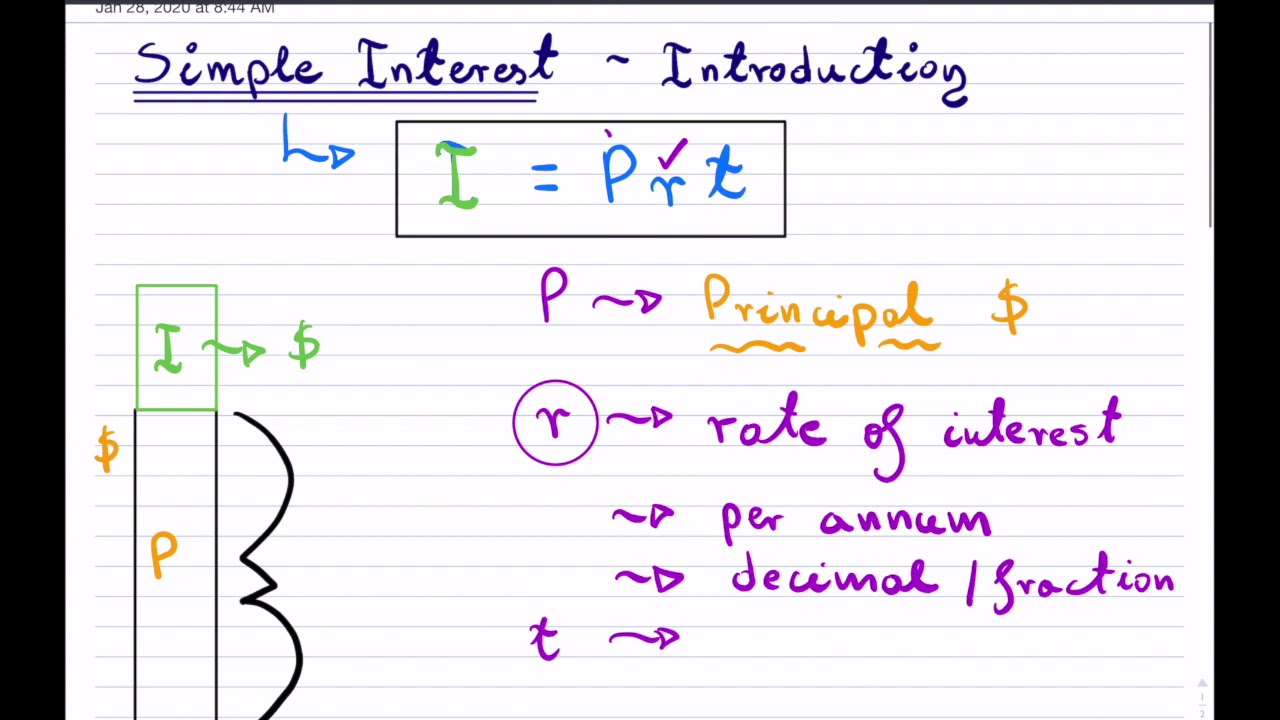 Jan 28, 2020 at 8:44 AM
Simple Interest ~ Introduction
I = P r t
P → Principal $
I → $
r → rate of interest
$
→ per annum
P
→ decimal / fraction
t →
1
2